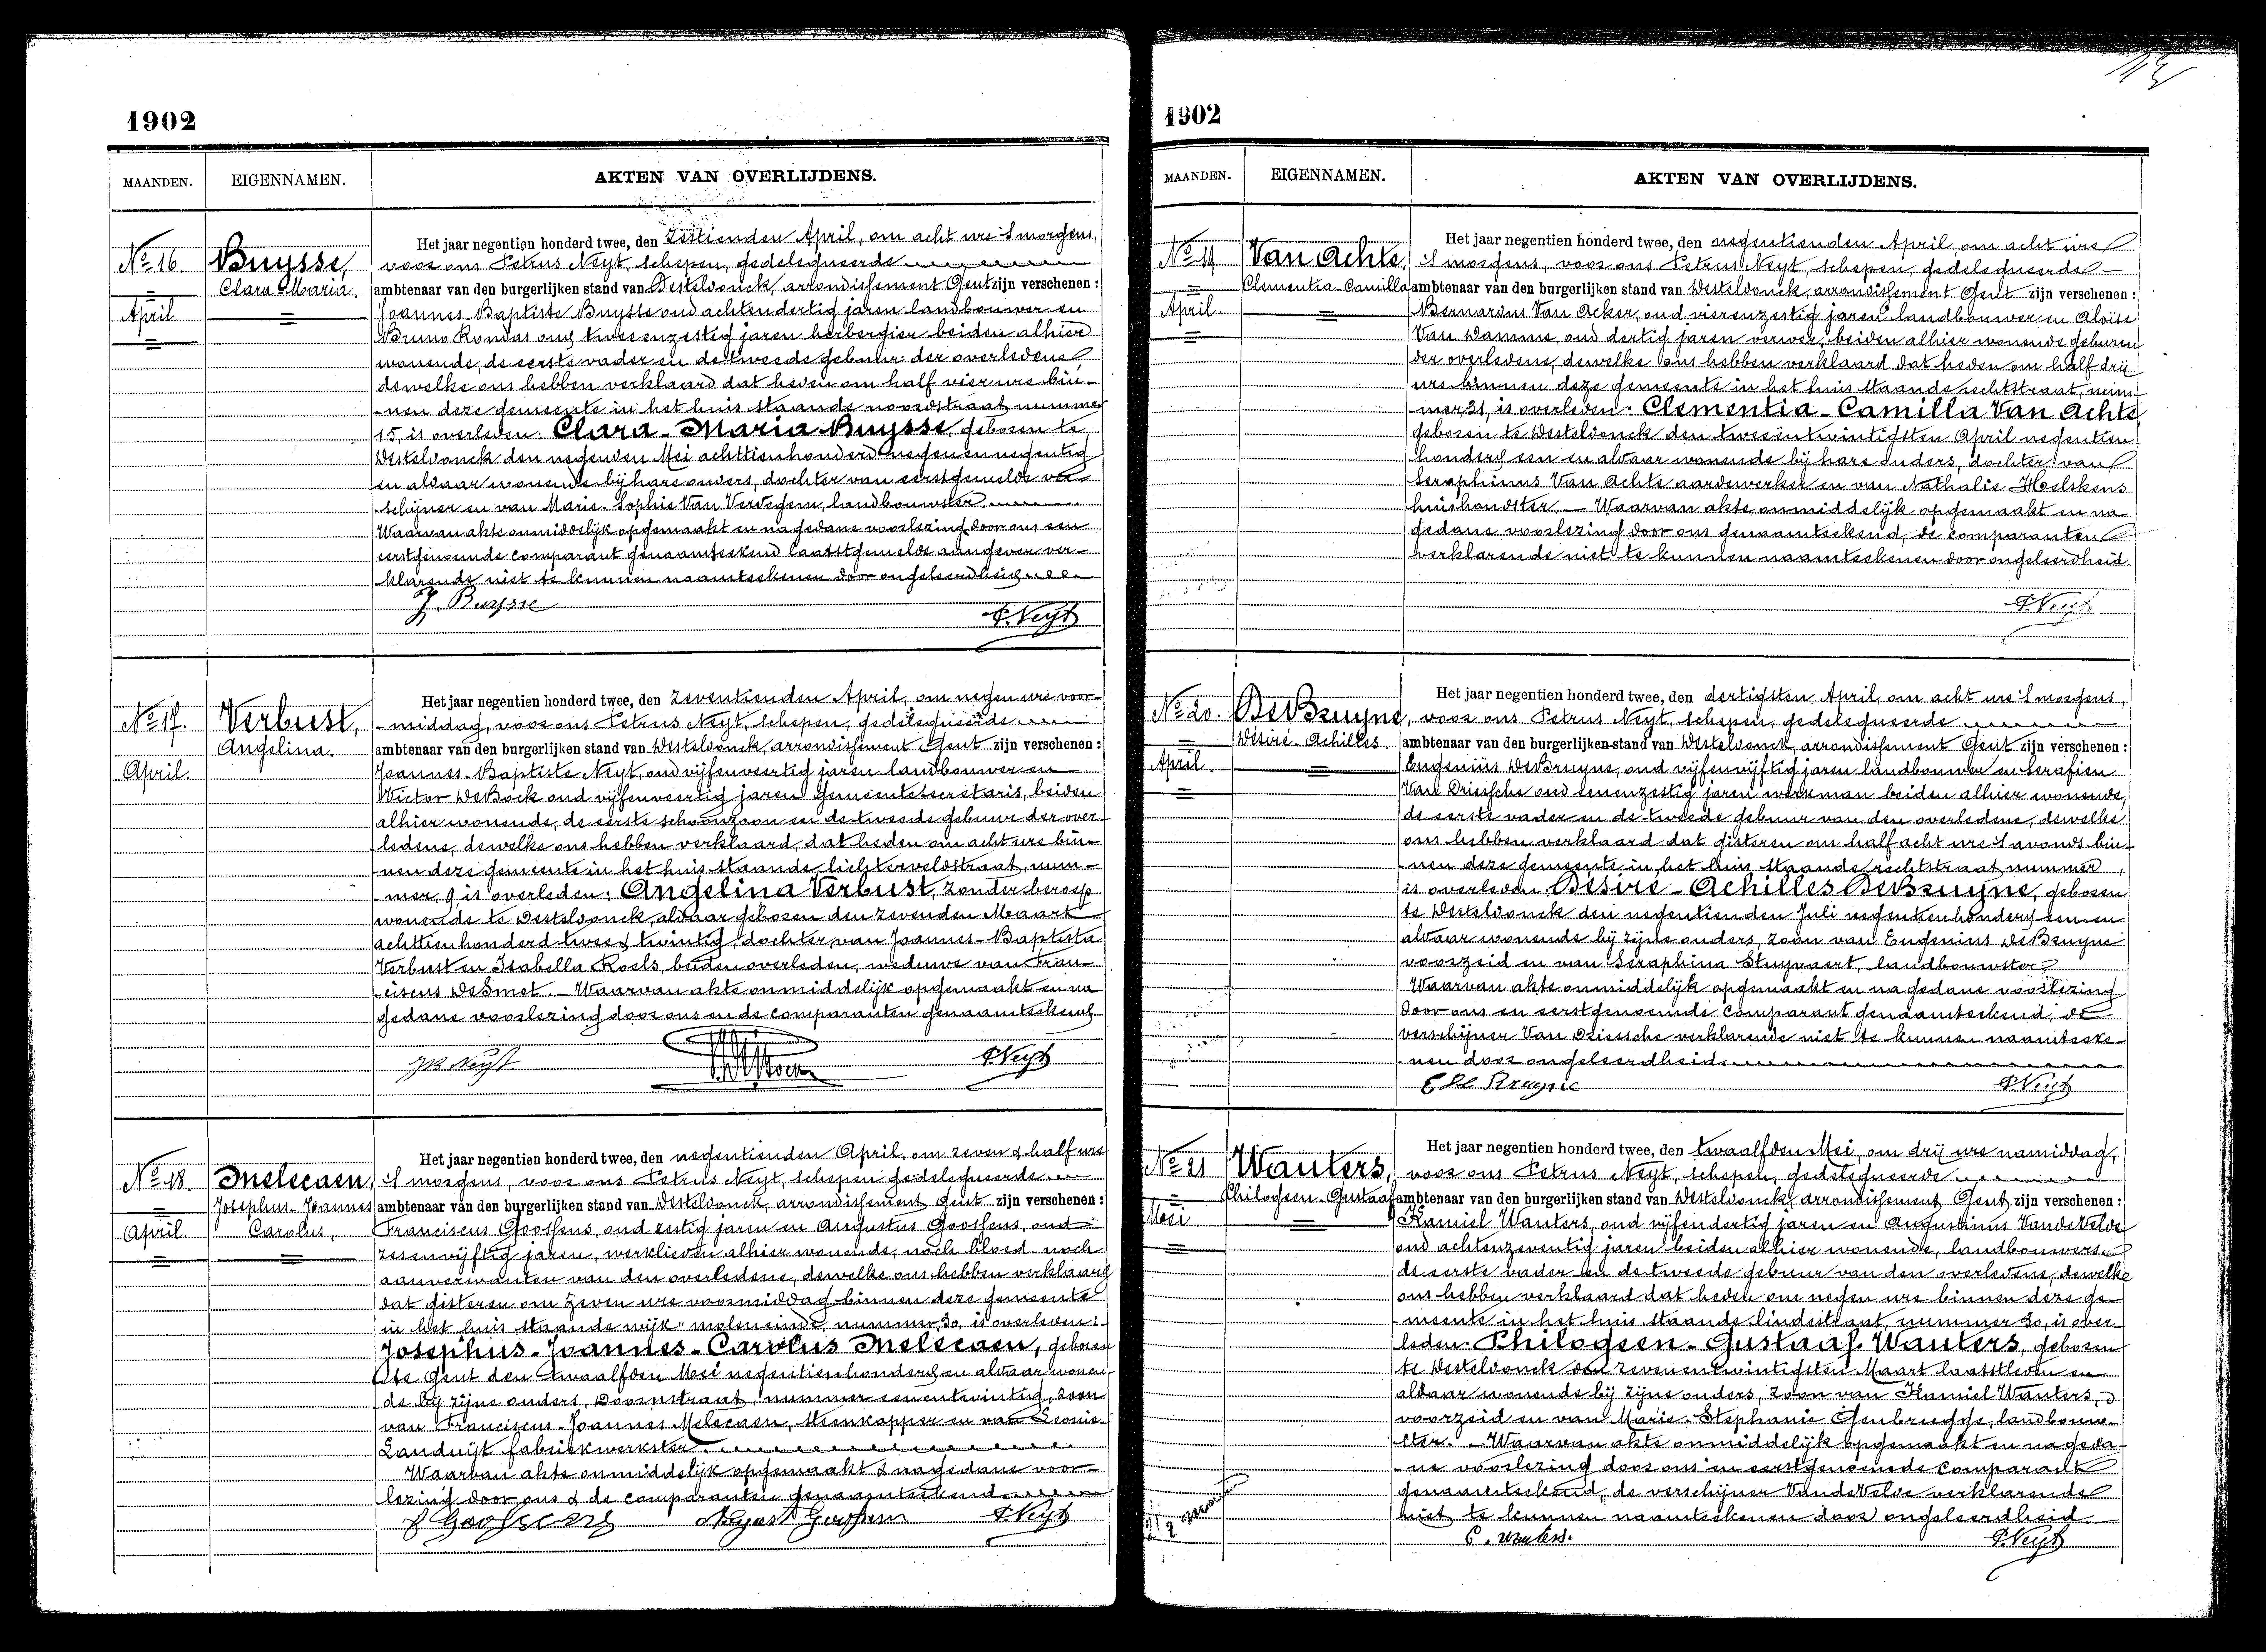 1902
MAANDEN. EIGENNAMEN. AKTEN VAN OVERLIJDENS.
No 16
April
Buysse,
Clara Maria.
Het jaar negentien honderd twee, den zestienden April, om acht ure 's morgens,
voor ons Petrus Neyt, schepen, gedelegueerde
ambtenaar van den burgerlijken stand van Desteldonck, arrondissement Gent zijn verschenen:
Joannes Baptiste Buysse oud achtendertig jaren landbouwer en
Bruno Rondas oud tweeenzestig jaren herbergier beiden alhier
wonende, de eerste vader en de tweede gebuur der overledene
dewelke ons hebben verklaard dat heden om half vier ure bin-
-nen deze gemeente in het huis staande noordstraat nummer
15, is overleden: Clara-Maria Buysse, geboren te
Desteldonck den negenden Mei achttienhonderd negenennegentig
en aldaar wonende bij hare ouders, dochter van eerstgemelde ver-
schijner en van Marie-Sophie Van Verdegem, landbouwster
Waarvan akte onmiddelijk opgemaakt en na gedane voorlezing door ons een
eerstgenoemde comparant genaamteekend laatstgemelde aangever ver-
klarende niet te kunnen naamteekenen door ongeleerdheid
J. Buysse
P. Neyt
No 17.
April.
Verbust,
Angelina.
Het jaar negentien honderd twee, den zeventienden April, om negen ure voor-
-middag, voor ons Petrus Neyt, schepen, gedelegueerde
ambtenaar van den burgerlijken stand van Desteldonck, arrondissement Gent zijn verschenen:
Joannes-Baptiste Neyt, oud vijfenveertig jaren landbouwer en
Victor DeBock oud vijfenveertig jaren Gemeentesecretaris, beiden
alhier wonende, de eerste schoonzoon en de tweede gebuur der over-
-ledene, dewelke ons hebben verklaard, dat heden om acht ure bin-
-nen deze gemeente in het huis staande lichterveldstraat, num-
-mer 9, is overleden: Angelina Verbust, zonder beroep
wonende te Desteldonck, aldaar geboren den zevenden Maart
achttienhonderd twee & twintig, dochter van Joannes-Baptista
Verbust en Isabella Roels, beiden overleden, weduwe van Fran-
-ciscus DeSmet. Waarvan akte onmiddelijk opgemaakt en na
gedane voorlezing door ons en de comparanten genaamteekend.
JB Neyt
P. Neyt
No 18.
April.
Melecaen,
Josephus-Joannes
Carolus.
Het jaar negentien honderd twee, den negentienden April, om zeven & half ure
's morgens, voor ons Petrus Neyt, schepen gedelegueerde
ambtenaar van den burgerlijken stand van Desteldonck, arrondissement Gent zijn verschenen:
Franciscus Goossens, oud zestig jaren en Augustus Goossens, oud
zesenvijftig jaren, werklieden alhier wonende, noch bloed noch
aanverwanten van den overledene, dewelke ons hebben verklaard
dat gisteren om zeven ure voormiddag binnen deze gemeente
in het huis staande wijk "moleneinde, nummer 30, is overleden:
Josephus-Joannes-Carolus Melecaen, geboren
te Gent den twaalfden Mei negentienhonderd en aldaar wonen-
de bij zijne ouders, Doornstraat, nummer eenentwintig, zoon
van Franciscus-Joannes Melecaen, steenkapper en van Leonie
Landuijt fabriekwerkster
Waarvan akte onmiddelijk opgemaakt & na gedane voor-
lezing door ons & de comparanten genaamteekend
F Goossens August Goossens P. Neyt
1902
MAANDEN. EIGENNAMEN. AKTEN VAN OVERLIJDENS.
No 19
April.
Van Achte,
Clementia-Camilla
Het jaar negentien honderd twee, den negentienden April om acht ure
's morgens, voor ons Petrus Neyt, schepen, gedelegueerde
ambtenaar van den burgerlijken stand van Desteldonck, arrondissement Gent zijn verschenen:
Bernardus Van Acker, oud vierenzestig jaren landbouwer en Aloïse
Van Damme, oud dertig jaren verwer, beiden alhier wonende geburen
der overledene, dewelke ons hebben verklaard dat heden om half drij
ure binnen deze gemeente in het huis staande rechtstraat, num-
-mer 31, is overleden: Clementia-Camilla Van Achte
geboren te Desteldonck den tweeentwintigsten April negentien
honderd een en aldaar wonende bij hare ouders, dochter van
Seraphinus Van Achte aardewerker en van Nathalie Hoelskens
huishoudster. — Waarvan akte onmiddelijk opgemaakt en na
gedane voorlezing door ons genaamteekend, de comparanten
verklarende niet te kunnen naamteekenen door ongeleerdheid.
P. Neyt
No 20.
April.
DeBruyne,
Désiré-Achilles.
Het jaar negentien honderd twee, den dertigsten April, om acht ure 's morgens,
voor ons Petrus Neyt, schepen, gedelegueerde
ambtenaar van den burgerlijken stand van Desteldonck, arrondissement Gent zijn verschenen:
Eugeniüs DeBruyne, oud vijfenvijftig jaren landbouwer en Serafien
Van Driessche oud eenenzestig jaren werkman beiden alhier wonende,
de eerste vader en de tweede gebuur van den overledene, dewelke
ons hebben verklaard dat gisteren om half acht ure 's avonds bin-
-nen deze gemeente in het huis staande rechtstraat nummer ,
is overleden Désiré-Achilles DeBruyne, geboren
te Desteldonck den negentienden Juli negentienhonderd een en
aldaar wonende bij zijne ouders, zoon van Eugenius DeBruyne
voorzeid en van Seraphina Stuyvaert, landbouwster,
Waarvan akte onmiddelijk opgemaakt en na gedane voorlezing
door ons en eerstgenoemde comparant genaamteekend, de
verschijner Van Driessche verklarende niet te kunnen naamteeke-
nen door ongeleerdheid.
E De Bruyne
P. Neyt
No 21
Mei
Wauters,
Philogeen-Gustaaf
Het jaar negentien honderd twee, den twaalfden Mei, om drij ure namiddag,
voor ons Petrus Neyt, schepen, gedelegueerde
ambtenaar van den burgerlijken stand van Desteldonck, arrondissement Gent zijn verschenen:
Kamiel Wauters, oud vijfendertig jaren en Augustinus VandeVelde
oud achtenzeventig jaren beiden alhier wonende, landbouwers
de eerste vader en de tweede gebuur van den overledene, dewelke
ons hebben verklaard dat heden om negen ure binnen deze ge-
-meente in het huis staande lindestraat, nummer 30, is over-
leden. Philogeen-Gustaaf Wauters, geboren
te Desteldonck den zevenentwintigsten Maart laatstleden en
aldaar wonende bij zijne ouders, zoon van Kamiel Wauters,
voorzeid en van Marie-Stephanie Genbrugge, landbouw-
ster. — Waarvan akte onmiddelijk opgemaakt en na geda-
-ne voorlezing door ons en eerstgenoemde comparant
genaamteekend, de verschijner VandeVelde verklarende
niet te kunnen naamteekenen door ongeleerdheid
C. Wauters.
P. Neyt